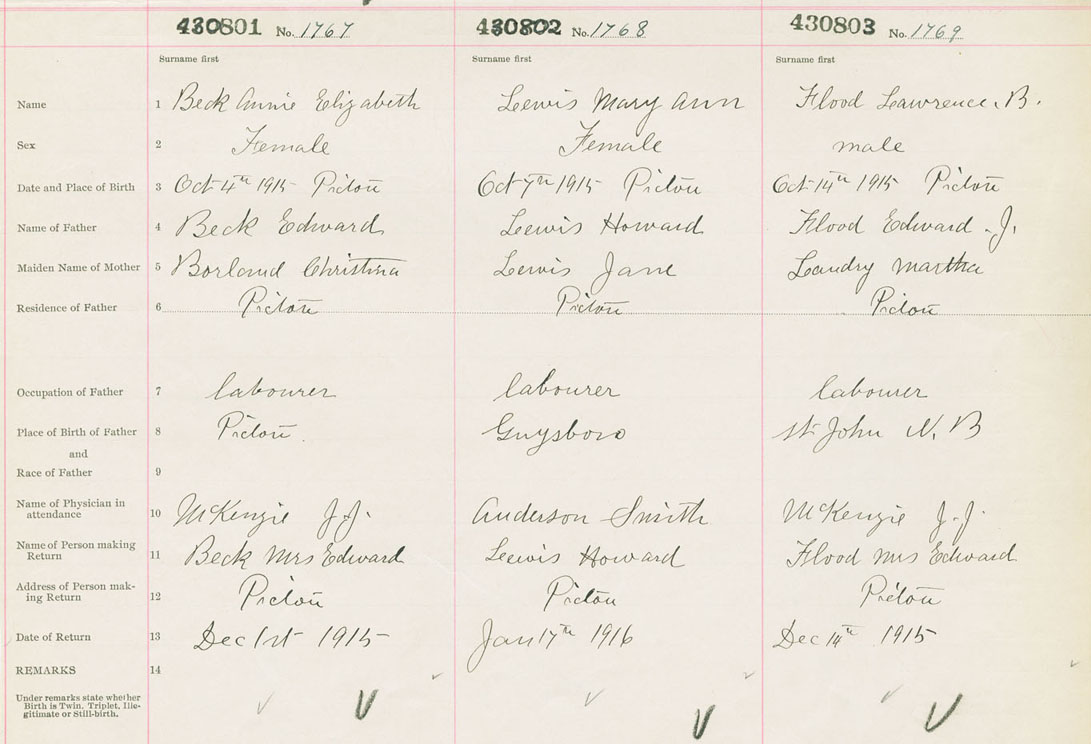 430801 No. 1767 430802 No. 1768 430803 No. 1769
Surname first Surname first Surname first
Name 1 Beck Annie Elizabeth Lewis Mary Ann Flood Lawrence. B.
Sex 2 Female Female male
Date and Place of Birth 3 Oct 4th 1915 Pictou Oct 7th 1915 Pictou Oct 14th 1915 Pictou
Name of Father 4 Beck Edward Lewis Howard Flood Edward. J.
Maiden Name of Mother 5 Borland Christina Lewis Jane Landry Martha
Residence of Father 6 Pictou Pictou Pictou
Occupation of Father 7 labourer labourer labourer
Place of Birth of Father 8 Pictou. Guysboro St John N. B
and
Race of Father 9
Name of Physician in
attendance 10 McKenzie J.J. Anderson Smith McKenzie J.J.
Name of Person making
Return 11 Beck Mrs Edward Lewis Howard Flood Mrs Edward
Address of Person mak-
ing Return 12 Pictou Pictou Pictou
Date of Return 13 Dec 1st 1915 Jan 17th 1916 Dec 14th 1915
REMARKS 14
Under remarks state whether
Birth is Twin, Triplet, Ille-
gitimate or Still-birth.